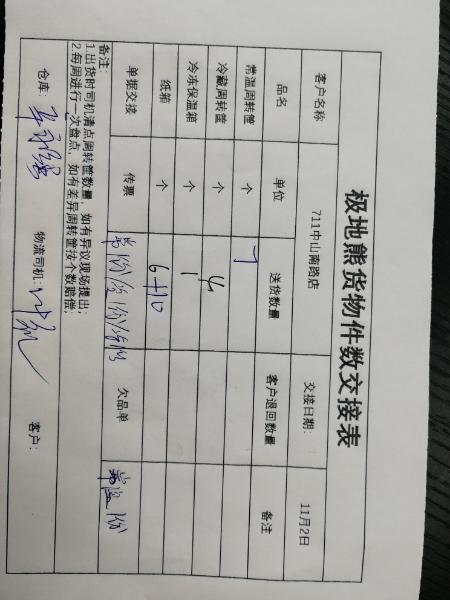 极地熊货物件数交接表
客户名称 711中山南路店 交接日期: 11月2日
品名 单位 送货数量 客户退回数量 备注
常温周转筐 个 7
冷藏周转筐 个 4
冷冻保温箱 个 1
纸箱 个 6+10
单据交接 传票 欠品单
备注:
1.出货时司机清点周转筐数量,如有异议现场提出;
2.每周进行一次盘点,如有差异周转筐按个数赔偿;
仓库: 物流司机: 客户: